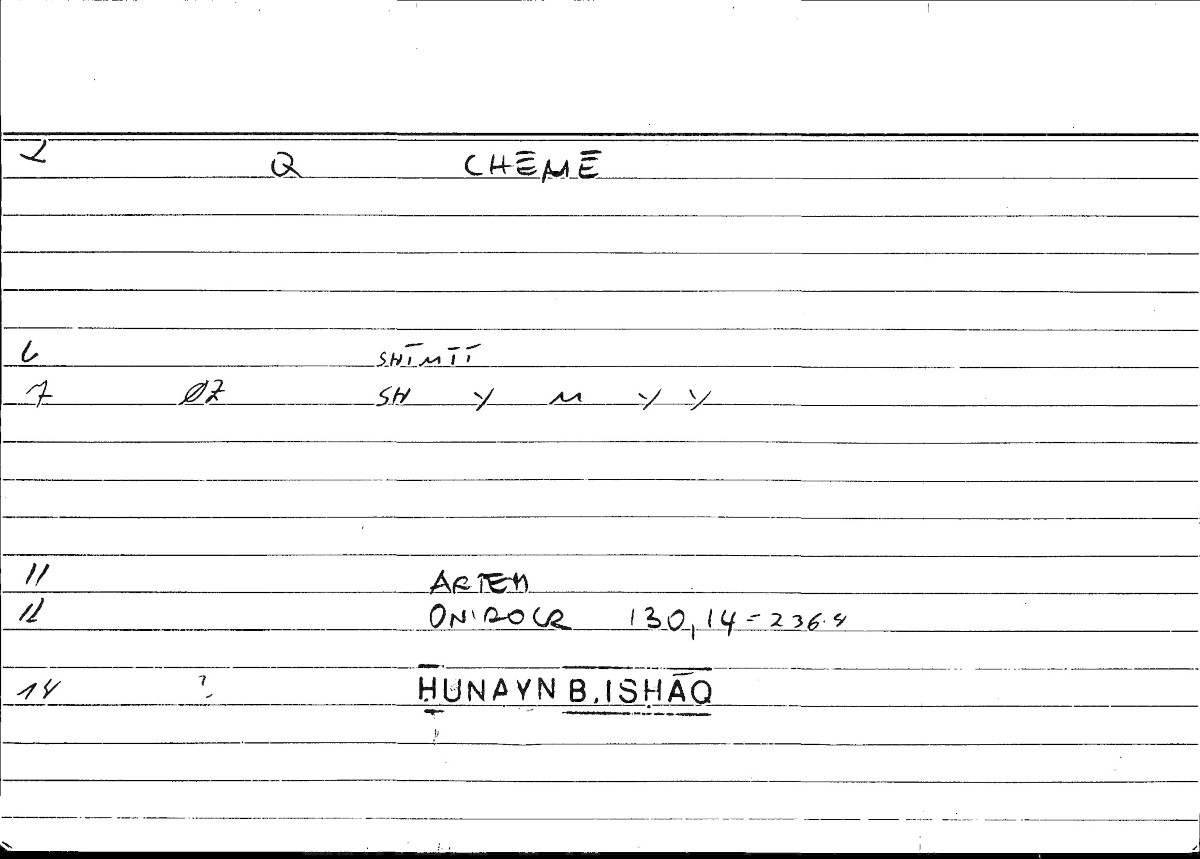 2 Q CHĒMĒ
6 SHĪMĪĪ
7 ØZ SH Y M Y Y
11 ARTEM
12 ONIROCR 130,14 = 236.9
14 ? ḤUNAYN B. ISḤĀQ